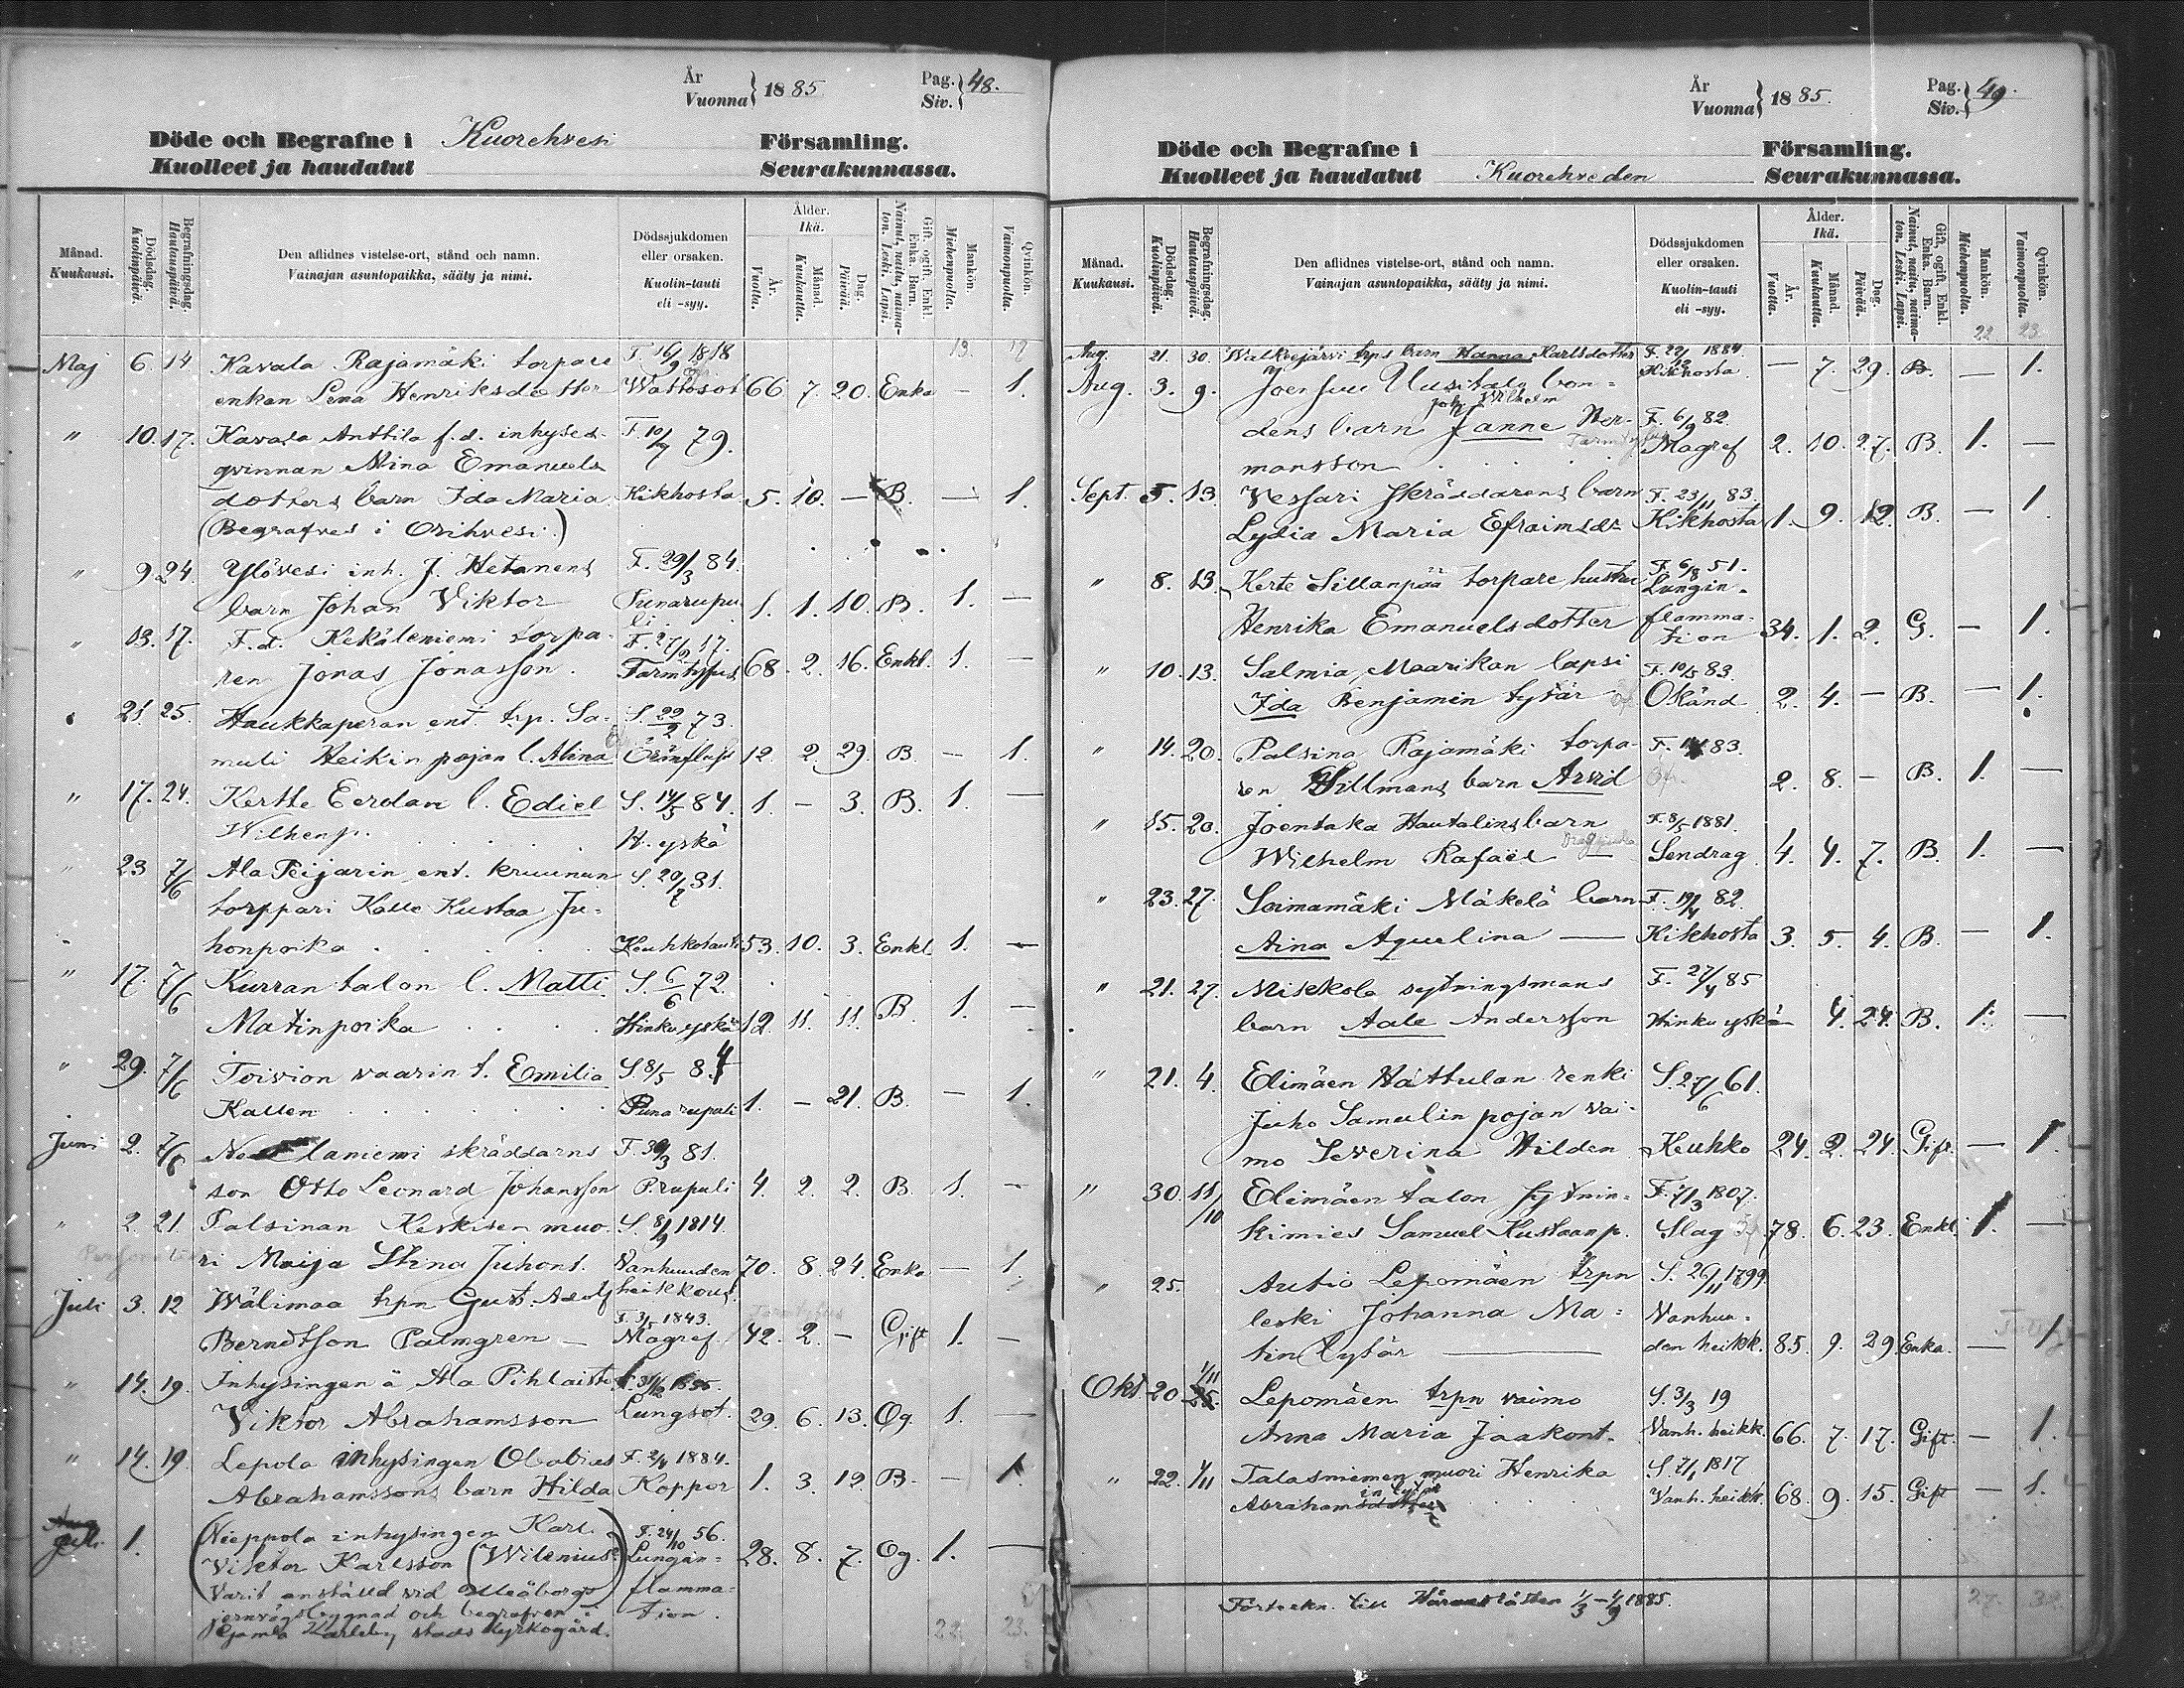 År
Vuonna } 1885
Pag.
Siv. } 48.
Döde och Begrafne i Kuorehvesi Församling.
Kuolleet ja haudatut Seurakunnassa.
Månad.
Kuukausi.
Dödsdag.
Kuolinpäivä.
Begrafningsdag.
Hautauspäivä.
Den aflidnes vistelse-ort, stånd och namn.
Vainajan asuntopaikka, sääty ja nimi.
Dödssjukdomen
eller orsaken.
Kuolin-tauti
eli -syy.
Ålder.
Ikä.
År.
Vuotta.
Månad.
Kuukautta.
Dag.
Päivää.
Gift, ogift, Enkl.
Enka. Barn.
Nainut, naitu, naima-
ton. Leski. Lapsi.
Mankön.
Miehenpuolta.
Qvinkön.
Vaimonpuolta.
Maj 6. 14 Kavala Rajamäki torpare F. 16/9 1818
enkan Lena Henriksdotter Wattusot 66 7. 20. Enka — 1.
" 10. 17. Kavala Anttila f.d. inhyses- F. 10/7 79.
qvinnan Mina Emanuels
dotters barn Ida Maria Kikhosta 5. 10. — B. — 1.
(Begrafves i Orihvesi.)
" 9. 24. Ylövesi inh. J. Hetanens F. 29/3 84.
barn Johan Viktor Punarupu 1. 1. 10. B. 1. —
li
" 13. 17. F.d. Kekäleniemi torpa- F. 27/2 17.
ren Jonas Jonasson. Tarmtyfus 68. 2. 16. Enkl. 1. —
21. 25. Haukkaperan ent. trp. Sa- S. 22/2 73.
muli Heikin pojan l. Mina 12. 2. 29. B. — 1.
" 17. 24. Kertte Eerolan l. Ediel S. 14/5 84. 1. — 3. B. 1. —
Wilhenp. H. yskä
" 23 7/6 Ala Peijarin ent. kruunun S. 20/7 31.
torppari Kalle Kustaa Ju-
honpoika Keuhkotauti 53. 10. 3. Enkl. 1. —
" 17. 7/6 Kurran talon l. Matti S. 6/6 72.
Matinpoika Hinku yskä 12. 11. 11. B. 1. —
" 29. 7/6 Toivion vaarin t. Emilia S. 8/5 84
Kallen Puna rupuli 1. — 21. B. — 1.
Juni 2. 7/6 laniemi skräddarns F. 30/3 81.
son Otto Leonard Johansson P. rupuli 4. 2. 2. B. 1. —
" 2. 21. Palsinan Keskisen muo- S. 8/9 1814.
ri Maija Stina Juhont. Vanhuuden 70. 8. 24. Enka — 1.
heikkous.
Juli 3. 12 Wälimaa trpn Gust. Adolf F. 3/5 1843.
Berndtsson Palmgren — Magref. 42. 2. — Gift 1. —
" 14. 19. Inhysingen å Ala Pihlaisto
Viktor Abrahamsson Lungsot. 29. 6. 13. Og. 1. —
" 14. 19. Lepola inhysingen F. 2/4 1884.
Abrahamssons barn Hilda Koppor 1. 3. 12. B. — 1.
Juli 1. (Nieppola inhysingen Karl F. 24/10 56.
Viktor Karlsson (Wilenius) Lungin- 28. 8. 7. Og. 1. —
Varit anställd vid Uleåborgs flamma-
jernvägsbyggnad och begrafven i tion.
Gamla Karleby stads kyrkogård.
22. 23.
År
Vuonna } 1885.
Pag.
Siv. } 49.
Döde och Begrafne i Församling.
Kuolleet ja haudatut Kuorehveden Seurakunnassa.
Månad.
Kuukausi.
Dödsdag.
Kuolinpäivä.
Begrafningsdag.
Hautauspäivä.
Den aflidnes vistelse-ort, stånd och namn.
Vainajan asuntopaikka, sääty ja nimi.
Dödssjukdomen
eller orsaken.
Kuolin-tauti
eli -syy.
Ålder.
Ikä.
År.
Vuotta.
Månad.
Kuukautta.
Dag.
Päivää.
Gift, ogift, Enkl.
Enka. Barn.
Nainut, naitu, naima-
ton. Leski. Lapsi.
Mankön.
Miehenpuolta.
Qvinkön.
Vaimonpuolta.
22 23
Aug. 21. 30. Walkejärvi trps barn Hanna Karlsdotter F. 22/12 1884.
Kikhosta — 7. 29. B. — 1.
Aug. 3. 9. Joensuu Uusitalo bon-
Joh. Wilhelm
dens barn Janne Her- F. 6/9 82.
mansson Magref 2. 10. 27. B. 1. —
Sept. 5. 13. Vessari Skräddarens barn F. 23/11 83.
Lydia Maria Efraimsdr Kikhosta 1. 9. 12. B. — 1.
" 8. 13. Kerte Sillanpää torpare hustru F. 6/8 51.
Lungin-
Henrika Emanuelsdotter flamma-
tion 34. 1. 2. G. — 1.
" 10. 13. Salmia, Maarikan lapsi F. 10/5 83.
Ida Benjamin tytär Okänd 2. 4. — B. — 1.
" 14. 20. Palsina Rajamäki torpa- 83.
ren Hillmans barn Arvid 2. 8. — B. 1. —
" 15. 20. Joentaka Hautalins barn F. 8/5 1881.
Wilhelm Rafael — Sendrag 4. 4. 7. B. 1. —
" 23. 27. Soimamäki Mäkelä barn F. 19/4 82.
Aina Aquelina — Kikhosta 3. 5. 4. B. — 1.
" 21. 27. Mikkola sytningsmans F. 27/4 85
barn Aale Andersson Hinku yskä — 4. 24. B. 1. —
" 21. 4. Elimäen Hattulan renki S. 27/6 61.
Juho Samulin pojan vai-
mo Severina Hilden Keuhko 24. 2. 24. Gift — 1.
" 30. 11/10 Elimäen talon sytnin- 1807.
kimies Samuel Kustaan p. Slag 78. 6. 23. Enkl. 1. —
" 25. Autio Lepomäen trpn S. 26/11 1799
leski Johanna Ma- Vanhuu-
tin tytär — den heikk. 85. 9. 29. Enka. — 1.
Okt 20 1/11 Lepomäen trpn vaimo S. 3/3 19
Anna Maria Jaakont. Vanh. heikk. 66. 7. 17. Gift — 1.
" 22. 1/11 Talasniemen muori Henrika S. 7/1 1817
Abraham Vanh. heikk. 68. 9. 15. Gift — 1.
Forteckn. till 1/3—1/9 1885.
27.